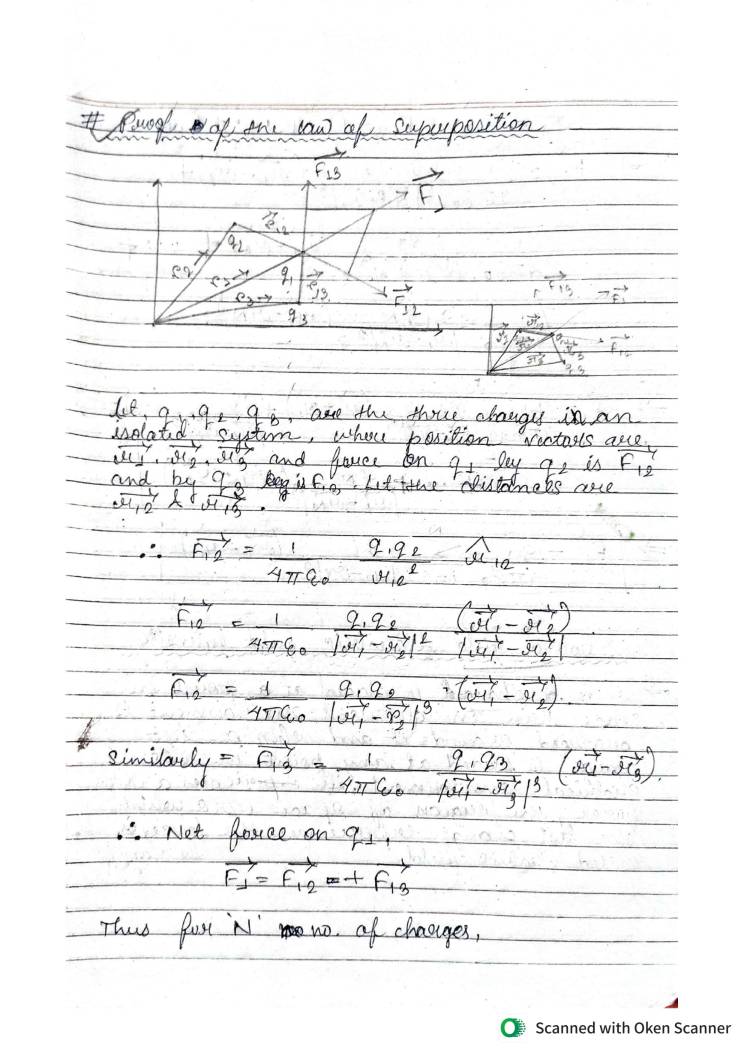 # Proof of the law of superposition
F⃗13
F⃗1
r⃗12
q2
r2
r⃗13
q1
F⃗12
r3
q3
F⃗13
F⃗12
Let, q1, q2, q3, are the three charges in an
isolated system, where position vectors are
r⃗1, r⃗2, r⃗3 and force on q1 by q2 is F⃗12
and by q3 is F13. Let the distances are
r⃗12 & r⃗13.
∴ F⃗12 = 1/4πε0 q1q2/r12² r̂12
F⃗12 = 1/4πε0 q1q2/|r⃗1 - r⃗2|² (r⃗1 - r⃗2)/|r⃗1 - r⃗2|
F⃗12 = 1/4πε0 q1q2/|r⃗1 - r⃗2|³ · (r⃗1 - r⃗2).
Similarly = F⃗13 = 1/4πε0 q1q3/|r⃗1 - r⃗3|³ (r⃗1 - r⃗3).
∴ Net force on q1,
F⃗1 = F⃗12 + F⃗13
Thus for 'N' no. of charges,
Scanned with Oken Scanner